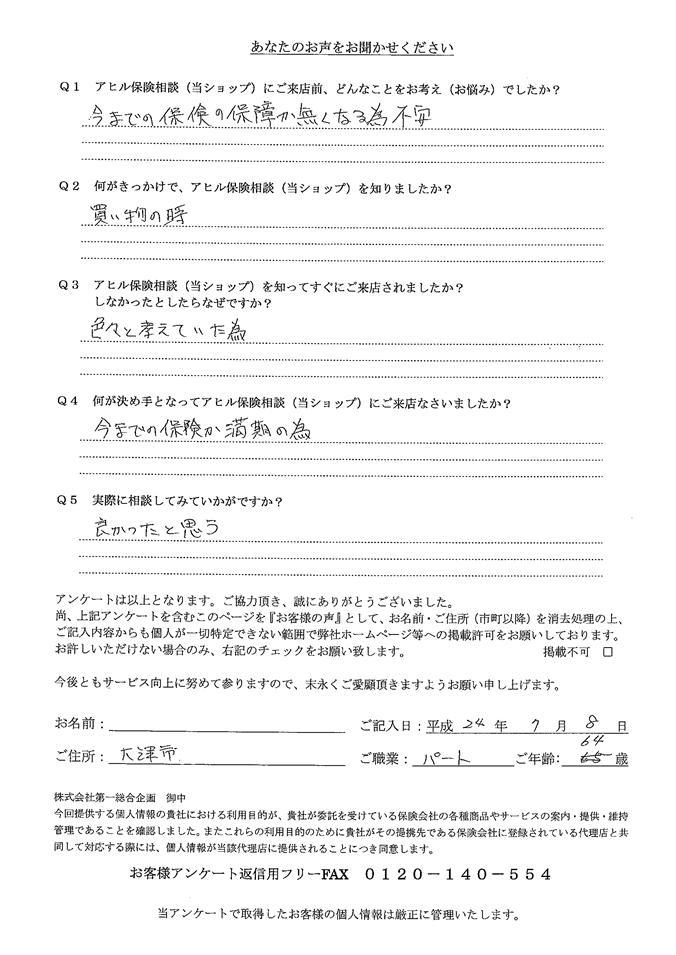 あなたのお声をお聞かせください
Q1 アヒル保険相談（当ショップ）にご来店前、どんなことをお考え（お悩み）でしたか？
今までの保険の保障が無くなる為不安
Q2 何がきっかけで、アヒル保険相談（当ショップ）を知りましたか？
買い物の時
Q3 アヒル保険相談（当ショップ）を知ってすぐにご来店されましたか？
しなかったとしたらなぜですか？
色々と考えていた為
Q4 何が決め手となってアヒル保険相談（当ショップ）にご来店なさいましたか？
今までの保険が満期の為
Q5 実際に相談してみていかがですか？
良かったと思う
アンケートは以上となります。ご協力頂き、誠にありがとうございました。
尚、上記アンケートを含むこのページを『お客様の声』として、お名前・ご住所（市町以降）を消去処理の上、
ご記入内容からも個人が一切特定できない範囲で弊社ホームページ等への掲載許可をお願いしております。
お許しいただけない場合のみ、右記のチェックをお願い致します。 掲載不可 □
今後ともサービス向上に努めて参りますので、末永くご愛顧頂きますようお願い申し上げます。
お名前： ご記入日：平成 24 年 7 月 8 日
64
ご住所： 大津市 ご職業： パート ご年齢： 65 歳
株式会社第一総合企画 御中
今回提供する個人情報の貴社における利用目的が、貴社が委託を受けている保険会社の各種商品やサービスの案内・提供・維持
管理であることを確認しました。またこれらの利用目的のために貴社がその提携先である保険会社に登録されている代理店と共
同して対応する際には、個人情報が当該代理店に提供されることにつき同意します。
お客様アンケート返信用フリーFAX 0120－140－554
当アンケートで取得したお客様の個人情報は厳正に管理いたします。